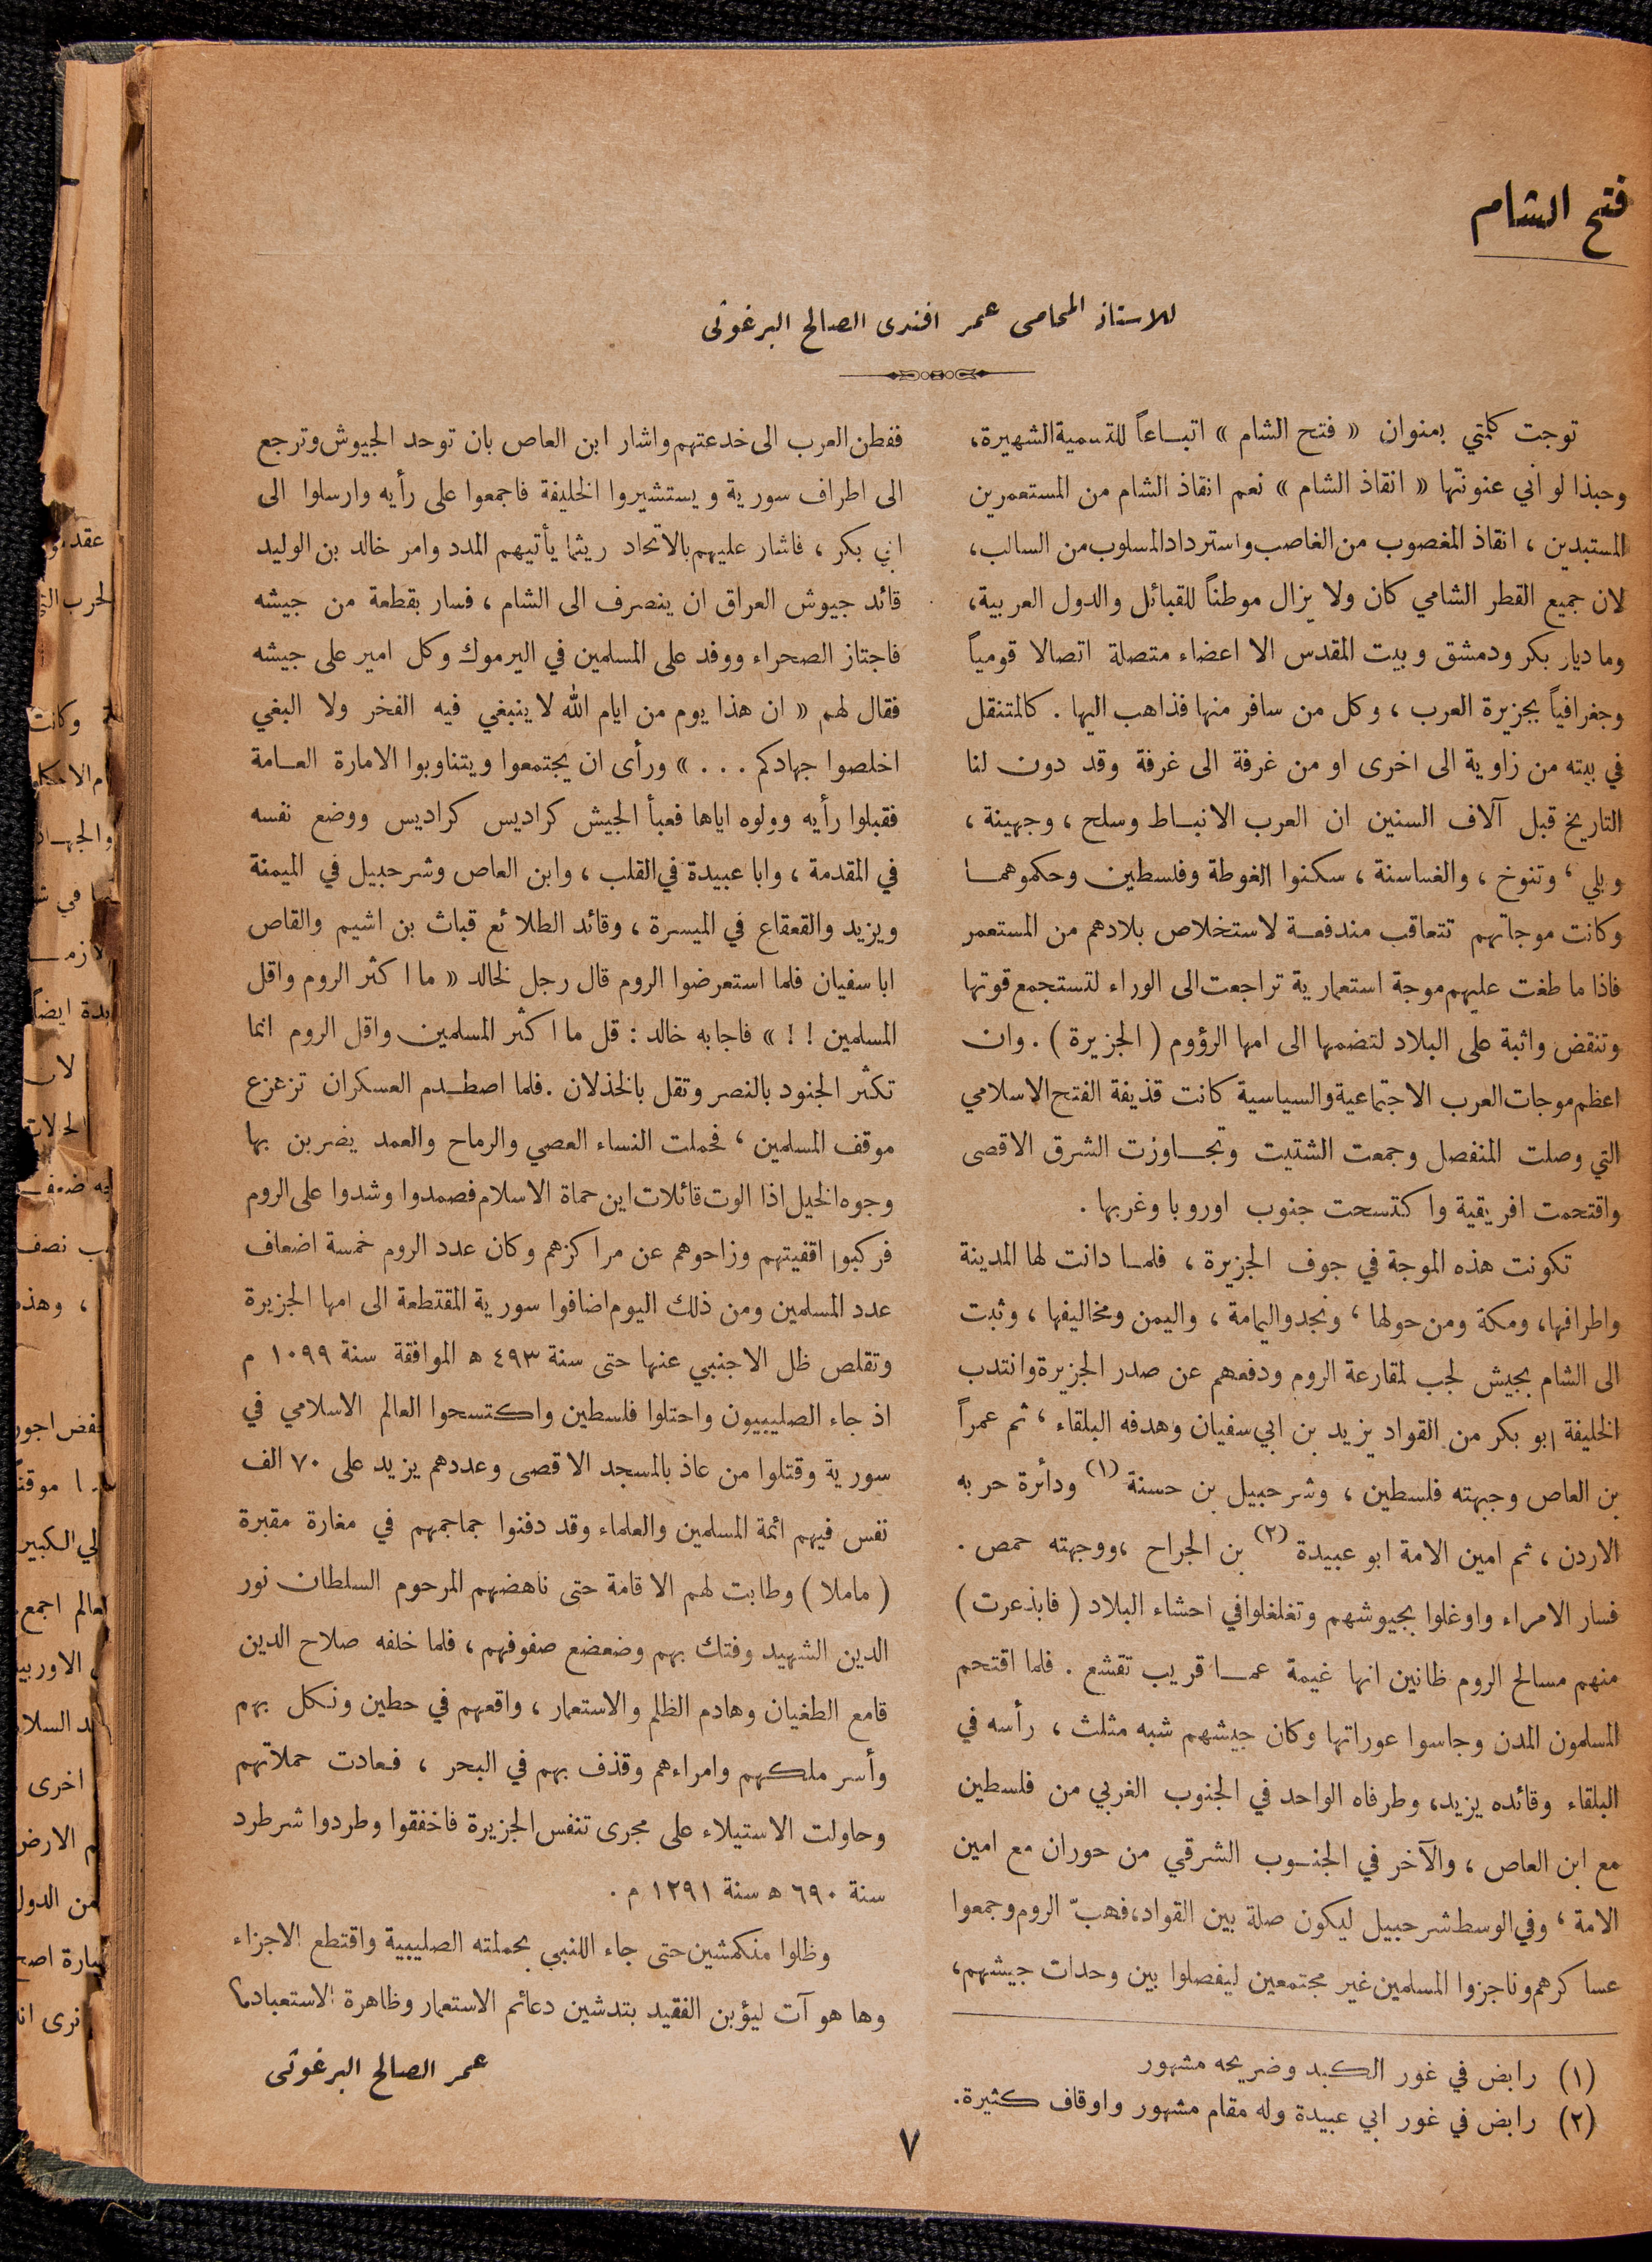 فتح الشام
للاستاذ المحامى عمر افندى الصالح البرغوثى
توجت كلمتي بعنوان « فتح الشام » اتباعاً للتسمية الشهيرة،
وحبذا لو اني عنونتها « انقاذ الشام » نعم انقاذ الشام من المستعمرين
المستبدين ، انقاذ المغصوب من الغاصب واسترداد المسلوب من السالب،
لان جميع القطر الشامي كان ولا يزال موطناً للقبائل والدول العربية،
وما ديار بكر ودمشق وبيت المقدس الا اعضاء متصلة اتصالا قومياً
وجغرافياً بجزيرة العرب ، وكل من سافر منها فذاهب اليها . كالمتنقل
في بيته من زاوية الى اخرى او من غرفة الى غرفة وقد دون لنا
التاريخ قبل آلاف السنين ان العرب الانباط وسلح ، وجهينة ،
وبلي ، وتنوخ ، والغساسنة ، سكنوا الغوطة وفلسطين وحكموهما
وكانت موجاتهم تتعاقب مندفعة لاستخلاص بلادهم من المستعمر
فاذا ما طغت عليهم موجة استعمارية تراجعت الى الوراء لتستجمع قوتها
وتنقض واثبة على البلاد لتضمها الى امها الرؤوم ( الجزيرة ) . وان
اعظم موجات العرب الاجتماعية والسياسية كانت قذيفة الفتح الاسلامي
التي وصلت المنفصل وجمعت الشتيت وتجاوزت الشرق الاقصى
واقتحمت افريقية واكتسحت جنوب اوروبا وغربها .
تكونت هذه الموجة في جوف الجزيرة ، فلما دانت لها المدينة
واطرافها، ومكة ومن حولها ، ونجد واليمامة ، واليمن ومخاليفها ، وثبت
الى الشام بجيش لجب لمقارعة الروم ودفعهم عن صدر الجزيرة وانتدب
الخليفة ابو بكر من القواد يزيد بن ابي سفيان وهدفه البلقاء ، ثم عمراً
بن العاص وجبهته فلسطين ، وشرحبيل بن حسنة (١) ودأئرة حربه
الاردن ، ثم امين الامة ابو عبيدة (٢) بن الجراح ،ووجهته حمص .
فسار الامراء واوغلوا بجيوشهم وتغلغلوا في احشاء البلاد ( فابذعرت )
منهم مسالح الروم ظانين انها غيمة عما قريب تقشع . فلما اقتحم
المسلمون المدن وجاسوا عوراتها وكان جيشهم شبه مثلث ، رأسه في
البلقاء وقائده يزيد، وطرفاه الواحد في الجنوب الغربي من فلسطين
مع ابن العاص ، والآخر في الجنوب الشرقي من حوران مع امين
الامة ، وفي الوسط شرحبيل ليكون صلة بين القواد، فهبّ الروم وجمعوا
عساكرهم وناجزوا المسلمين غير مجتمعين ليفصلوا بين وحدات جيشهم،
(١) رابض في غور الكبد وضريحه مشهور
(٢) رابض في غور ابي عبيدة وله مقام مشهور واوقاف كثيرة.
ففطن العرب الى خدعتهم واشار ابن العاص بان توحد الجيوش وترجع
الى اطراف سورية ويستشيروا الخليفة فاجمعوا على رأيه وارسلوا الى
ابي بكر ، فاشار عليهم بالاتحاد ريثما يأتيهم المدد وامر خالد بن الوليد
قائد جيوش العراق ان ينصرف الى الشام ، فسار بقطعة من جيشه
فاجتاز الصحراء ووفد على المسلمين في اليرموك وكل امير على جيشه
فقال لهم « ان هذا يوم من ايام الله لا ينبغي فيه الفخر ولا البغي
اخلصوا جهادكم . . . » ورأى ان يجتمعوا ويتناوبوا الامارة العامة
فقبلوا رأيه وولوه اياها فعبأ الجيش كراديس كراديس ووضع نفسه
في المقدمة ، وابا عبيدة في القلب ، وابن العاص وشرحبيل في الميمنة
ويزيد والقعقاع في الميسرة ، وقائد الطلائع قباث بن اشيم والقاص
ابا سفيان فلما استعرضوا الروم قال رجل لخالد « ما اكثر الروم واقل
المسلمين ! ! » فاجابه خالد : قل ما اكثر المسلمين واقل الروم انما
تكثر الجنود بالنصر وتقل بالخذلان .فلما اصطدم العسكران تزعزع
موقف المسلمين ، فحملت النساء العصي والرماح والعمد يضربن بها
وجوه الخيل اذا الوت قائلات اين حماة الاسلام فصمدوا وشدوا على الروم
فركبوا اقفيتهم وزاحوهم عن مراكزهم وكان عدد الروم خمسة اضعاف
عدد المسلمين ومن ذلك اليوم اضافوا سورية المقتطعة الى امها الجزيرة
وتقلص ظل الاجنبي عنها حتى سنة ٤٩٣ ه الموافقة سنة ١٠٩٩ م
اذ جاء الصليبيون واحتلوا فلسطين واكتسحوا العالم الاسلامي في
سورية وقتلوا من عاذ بالمسجد الاقصى وعددهم يزيد على ٧٠ الف
نفس فيهم ائمة المسلمين والعلماء وقد دفنوا جماجمهم في مغارة مقبرة
( ماملا ) وطابت لهم الاقامة حتى ناهضهم المرحوم السلطان نور
الدين الشهيد وفتك بهم وضعضع صفوفهم ، فلما خلفه صلاح الدين
قامع الطغيان وهادم الظلم والاستعمار ، واقعهم في حطين ونكل بهم
وأسر ملكهم وامراءهم وقذف بهم في البحر ، فعادت حملاتهم
وحاولت الاستيلاء على مجرى تنفس الجزيرة فاخفقوا وطردوا شر طرد
سنة ٦٩٠ ه سنة ١٢٩١ م .
وظلوا منكمشين حتى جاء اللنبي بحملته الصليبية واقتطع الاجزاء
وها هو آت ليؤبن الفقيد بتدشين دعائم الاستعمار وظاهرة الاستعباد؟
عمر الصالح البرغوثى
٧